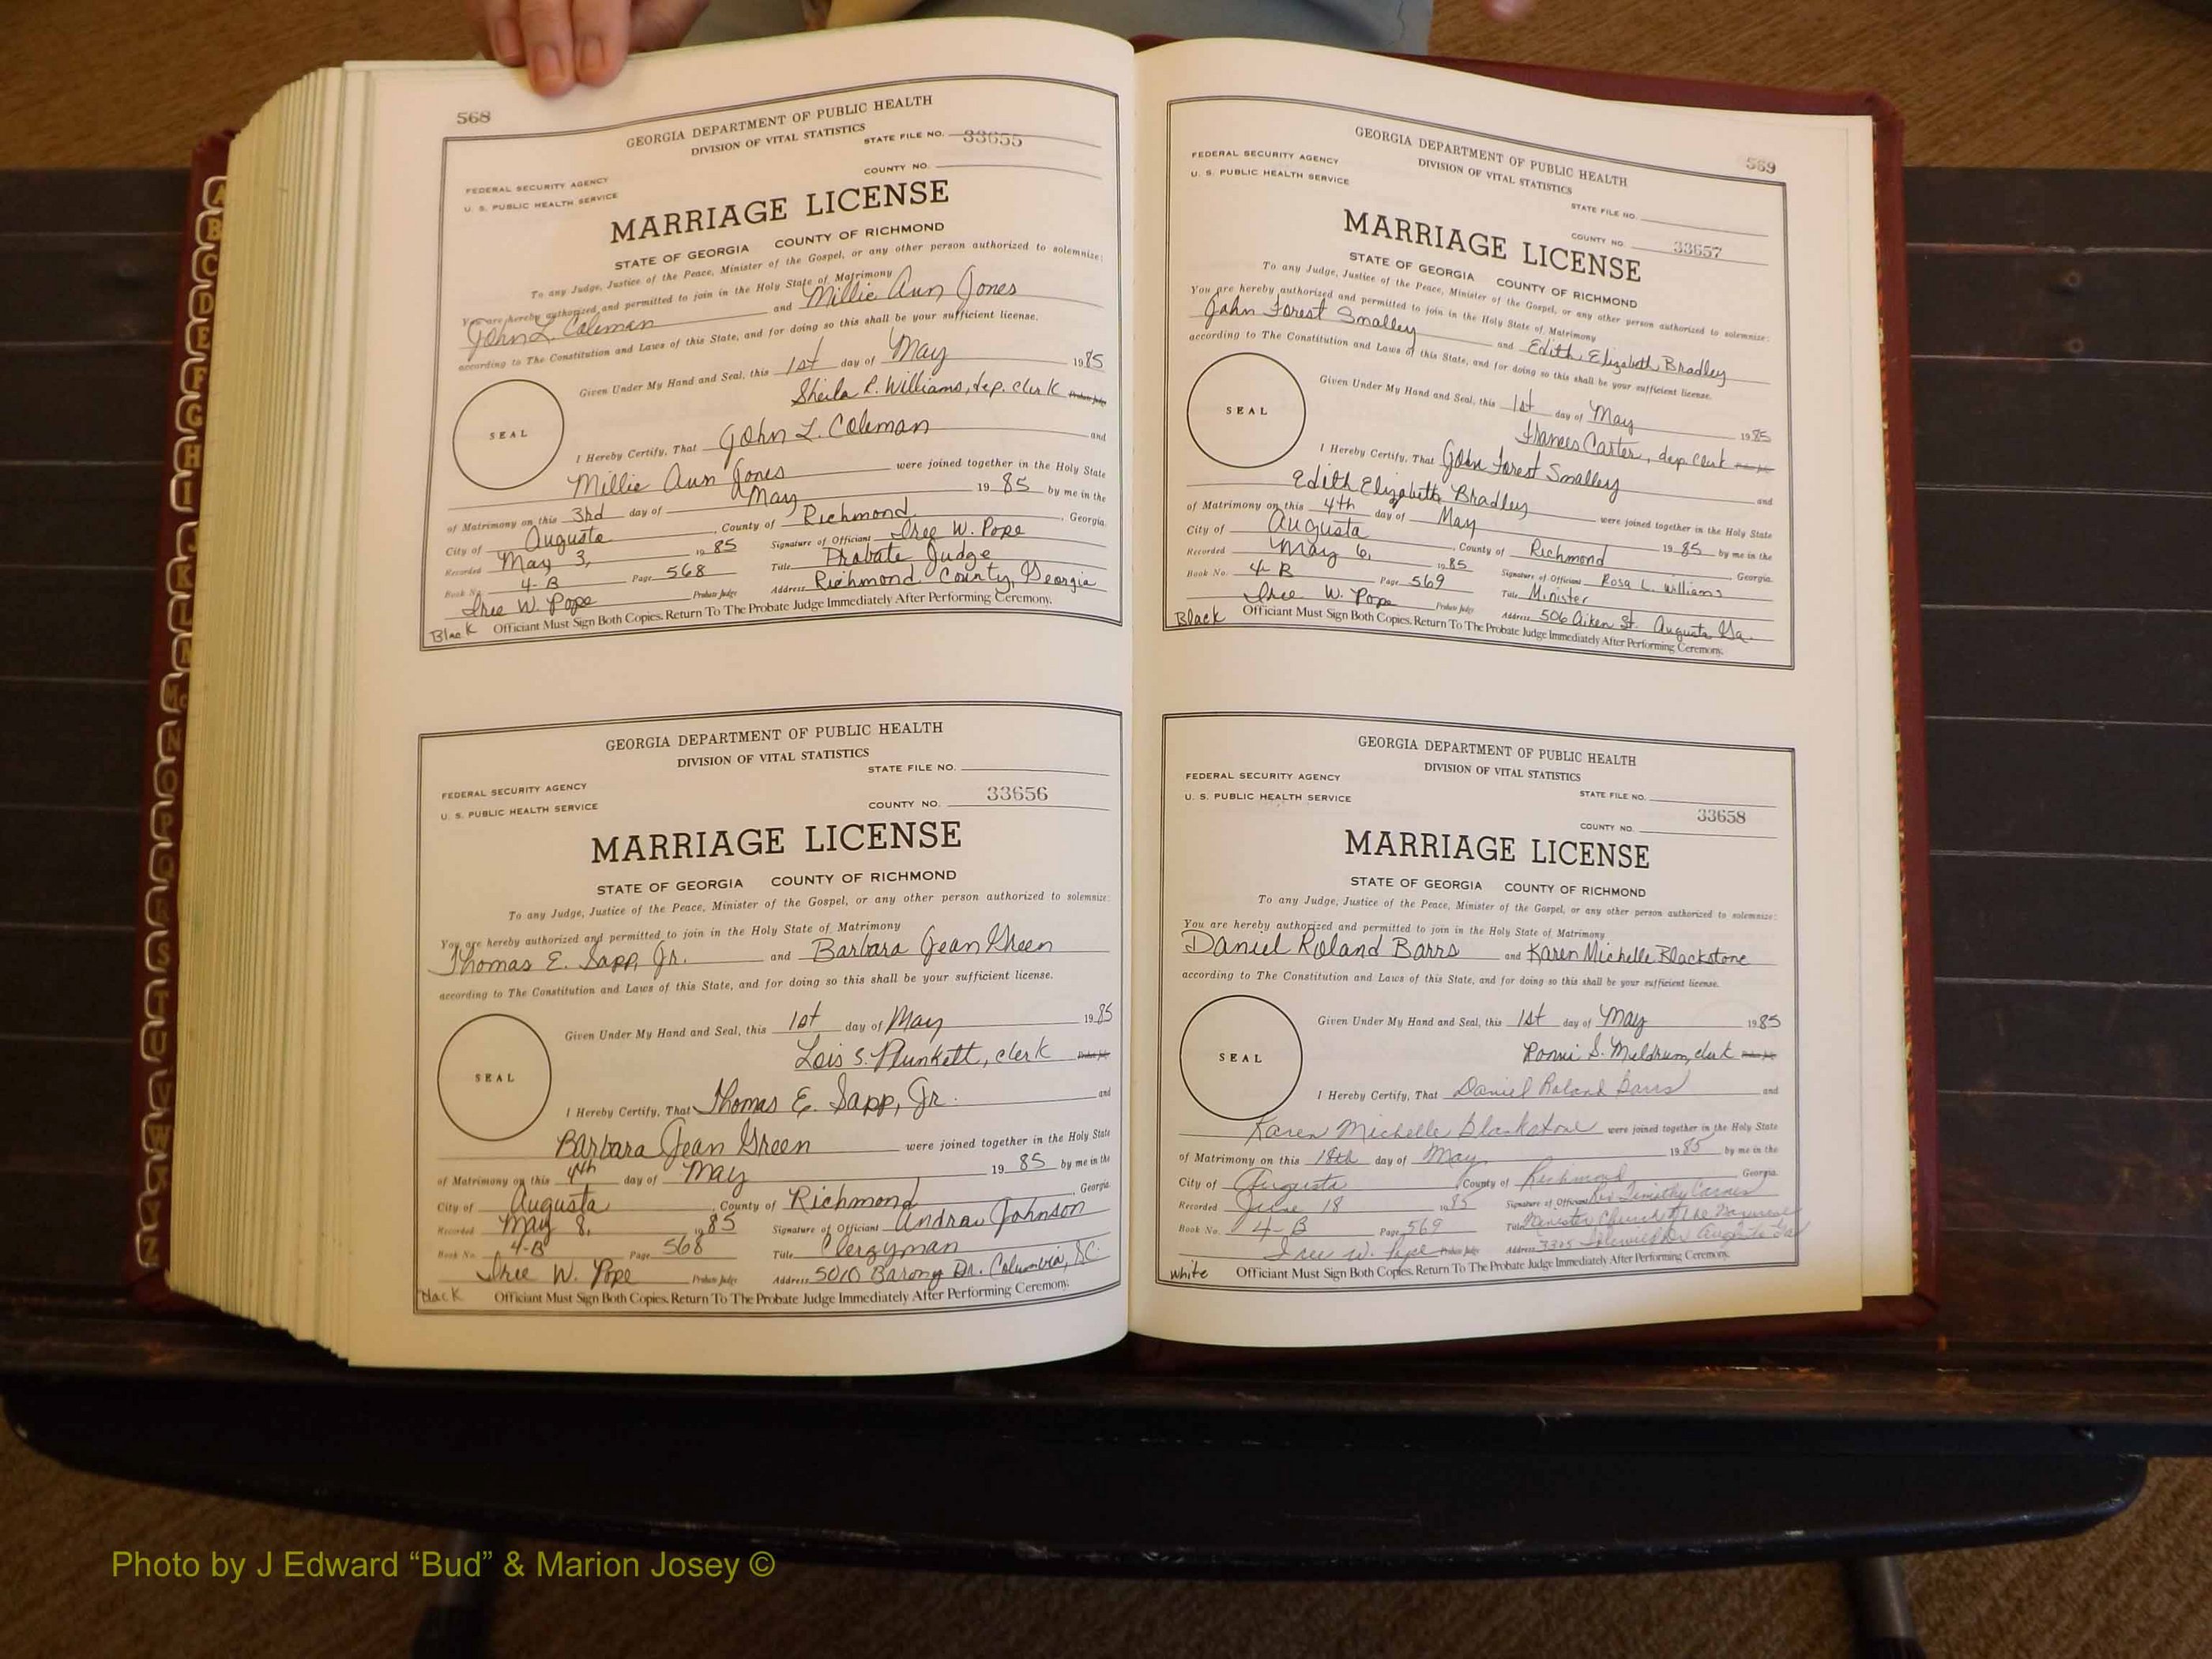 568
GEORGIA DEPARTMENT OF PUBLIC HEALTH
DIVISION OF VITAL STATISTICS
STATE FILE NO. 33655
COUNTY NO.
FEDERAL SECURITY AGENCY
U. S. PUBLIC HEALTH SERVICE
MARRIAGE LICENSE
STATE OF GEORGIA COUNTY OF RICHMOND
To any Judge, Justice of the Peace, Minister of the Gospel, or any other person authorized to solemnize:
You are hereby authorized and permitted to join in the Holy State of Matrimony
John L. Coleman and Millie Ann Jones
according to The Constitution and Laws of this State, and for doing so this shall be your sufficient license.
Given Under My Hand and Seal, this 1st day of May 1985
Sheila R. Williams, dep. clerk Probate Judge
SEAL
I Hereby Certify, That John L. Coleman and
Millie Ann Jones were joined together in the Holy State
of Matrimony on this 3rd day of May 1985 by me in the
City of Augusta, County of Richmond, Georgia.
Recorded May 3, 1985 Signature of Officiant Isee W. Pope
Book No. 4-B Page 568 Title Probate Judge
Isee W. Pope Probate Judge Address Richmond County, Georgia
Black Officiant Must Sign Both Copies. Return To The Probate Judge Immediately After Performing Ceremony.
GEORGIA DEPARTMENT OF PUBLIC HEALTH
DIVISION OF VITAL STATISTICS
STATE FILE NO.
FEDERAL SECURITY AGENCY
U. S. PUBLIC HEALTH SERVICE
COUNTY NO. 33656
MARRIAGE LICENSE
STATE OF GEORGIA COUNTY OF RICHMOND
To any Judge, Justice of the Peace, Minister of the Gospel, or any other person authorized to solemnize:
You are hereby authorized and permitted to join in the Holy State of Matrimony
Thomas E. Sapp, Jr. and Barbara Jean Green
according to The Constitution and Laws of this State, and for doing so this shall be your sufficient license.
Given Under My Hand and Seal, this 1st day of May 1985
Lois S. Plunkett, clerk Probate Judge
SEAL
I Hereby Certify, That Thomas E. Sapp, Jr. and
Barbara Jean Green were joined together in the Holy State
of Matrimony on this 4th day of May 1985 by me in the
City of Augusta, County of Richmond, Georgia.
Recorded May 8, 1985 Signature of Officiant Andraw Johnson
Book No. 4-B Page 568 Title Clergyman
Isee W. Pope Probate Judge Address 5010 Barony Dr. Columbia, SC.
Black Officiant Must Sign Both Copies. Return To The Probate Judge Immediately After Performing Ceremony.
569
GEORGIA DEPARTMENT OF PUBLIC HEALTH
DIVISION OF VITAL STATISTICS
FEDERAL SECURITY AGENCY
U. S. PUBLIC HEALTH SERVICE
STATE FILE NO.
COUNTY NO. 33657
MARRIAGE LICENSE
STATE OF GEORGIA COUNTY OF RICHMOND
To any Judge, Justice of the Peace, Minister of the Gospel, or any other person authorized to solemnize:
You are hereby authorized and permitted to join in the Holy State of Matrimony
John Forest Smalley and Edith Elizabeth Bradley
according to The Constitution and Laws of this State, and for doing so this shall be your sufficient license.
Given Under My Hand and Seal, this 1st day of May 1985
Frances Carter, dep clerk Probate Judge
SEAL
I Hereby Certify, That John Forest Smalley and
Edith Elizabeth Bradley were joined together in the Holy State
of Matrimony on this 4th day of May 1985 by me in the
City of Augusta, County of Richmond, Georgia.
Recorded May 6, 1985 Signature of Officiant Rosa L. Williams
Book No. 4-B Page 569 Title Minister
Isee W. Pope Probate Judge Address 506 Aiken St. Augusta Ga.
Black Officiant Must Sign Both Copies. Return To The Probate Judge Immediately After Performing Ceremony.
GEORGIA DEPARTMENT OF PUBLIC HEALTH
DIVISION OF VITAL STATISTICS
FEDERAL SECURITY AGENCY
U. S. PUBLIC HEALTH SERVICE
STATE FILE NO.
COUNTY NO. 33658
MARRIAGE LICENSE
STATE OF GEORGIA COUNTY OF RICHMOND
To any Judge, Justice of the Peace, Minister of the Gospel, or any other person authorized to solemnize:
You are hereby authorized and permitted to join in the Holy State of Matrimony
Daniel Roland Barrs and Karen Michelle Blackstone
according to The Constitution and Laws of this State, and for doing so this shall be your sufficient license.
Given Under My Hand and Seal, this 1st day of May 1985
Ronni S. Meldrum, clerk Probate Judge
SEAL
I Hereby Certify, That Daniel Roland Barrs and
Karen Michelle Blackstone were joined together in the Holy State
of Matrimony on this 18th day of May 1985 by me in the
City of Augusta County of Richmond Georgia.
Recorded June 18 1985 Signature of Officiant Rev Timothy Carnes
Book No. 4-B Page 569 Title Minister Church of The Nazarene
W. Pope Probate Judge Address Augusta Ga
White Officiant Must Sign Both Copies. Return To The Probate Judge Immediately After Performing Ceremony.
A
B
C
D
E
F
G
H
I
J
K
L
M
Mc
N
O
P
Q
R
S
T
U
V
W
Y
Z
Photo by J Edward “Bud” & Marion Josey ©